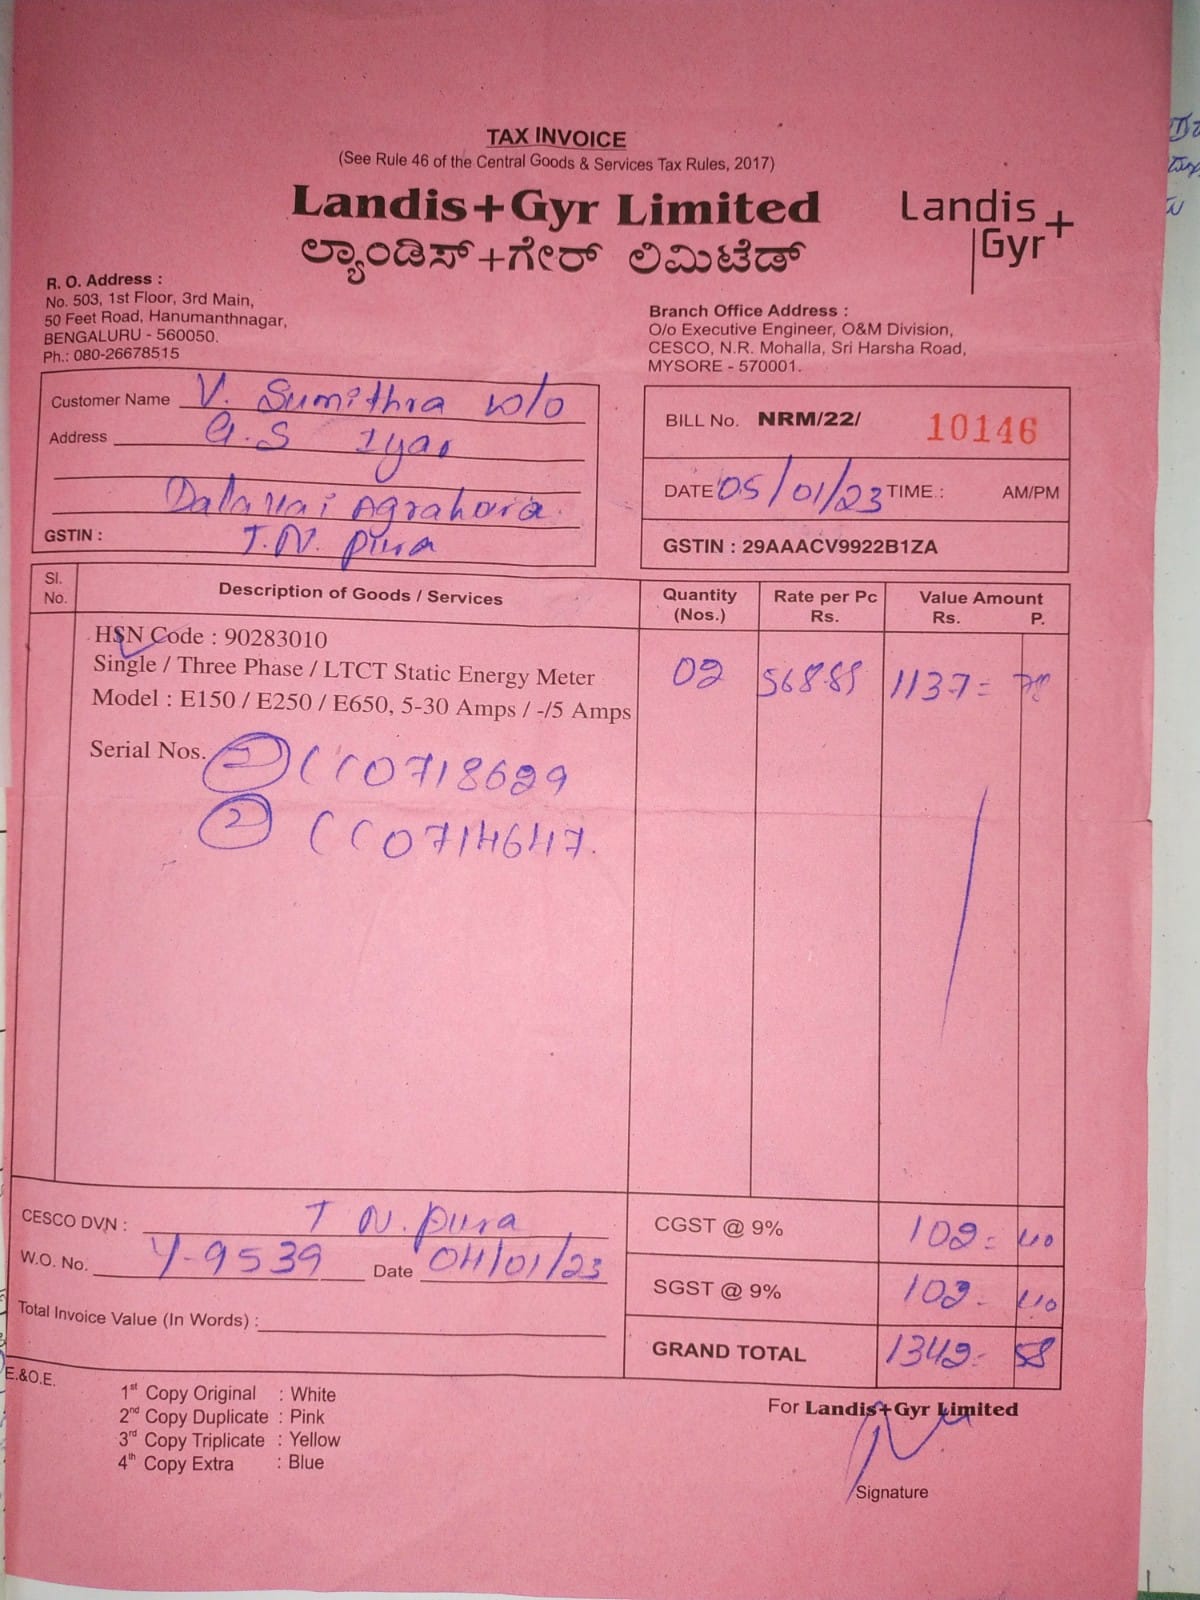 TAX INVOICE
(See Rule 46 of the Central Goods & Services Tax Rules, 2017)
Landis+Gyr Limited
ಲ್ಯಾಂಡಿಸ್+ಗೇರ್ ಲಿಮಿಟೆಡ್
Landis
Gyr+
R. O. Address :
No. 503, 1st Floor, 3rd Main,
50 Feet Road, Hanumanthnagar,
BENGALURU - 560050.
Ph.: 080-26678515
Branch Office Address :
O/o Executive Engineer, O&M Division,
CESCO, N.R. Mohalla, Sri Harsha Road,
MYSORE - 570001.
Customer Name V. Sumithra W/o
Address G.S Iyar
Dalavai Agrahara
GSTIN : T.N. Pura
BILL No. NRM/22/ 10146
DATE 05/01/23 TIME.: AM/PM
GSTIN : 29AAACV9922B1ZA
Sl. No. Description of Goods / Services Quantity (Nos.) Rate per Pc Rs. Value Amount Rs. P.
HSN Code : 90283010
Single / Three Phase / LTCT Static Energy Meter 02 568.89 1137= 78
Model : E150 / E250 / E650, 5-30 Amps / -/5 Amps
Serial Nos. 1 CC0718629
2 CC0714647.
CESCO DVN : T N. Pura
W.O. No. Y-9539 Date 04/01/23
Total Invoice Value (In Words) :
CGST @ 9% 102= 40
SGST @ 9% 102- 40
GRAND TOTAL 1342= 58
E.&O.E.
1st Copy Original : White
2nd Copy Duplicate : Pink
3rd Copy Triplicate : Yellow
4th Copy Extra : Blue
For Landis+Gyr Limited
Signature